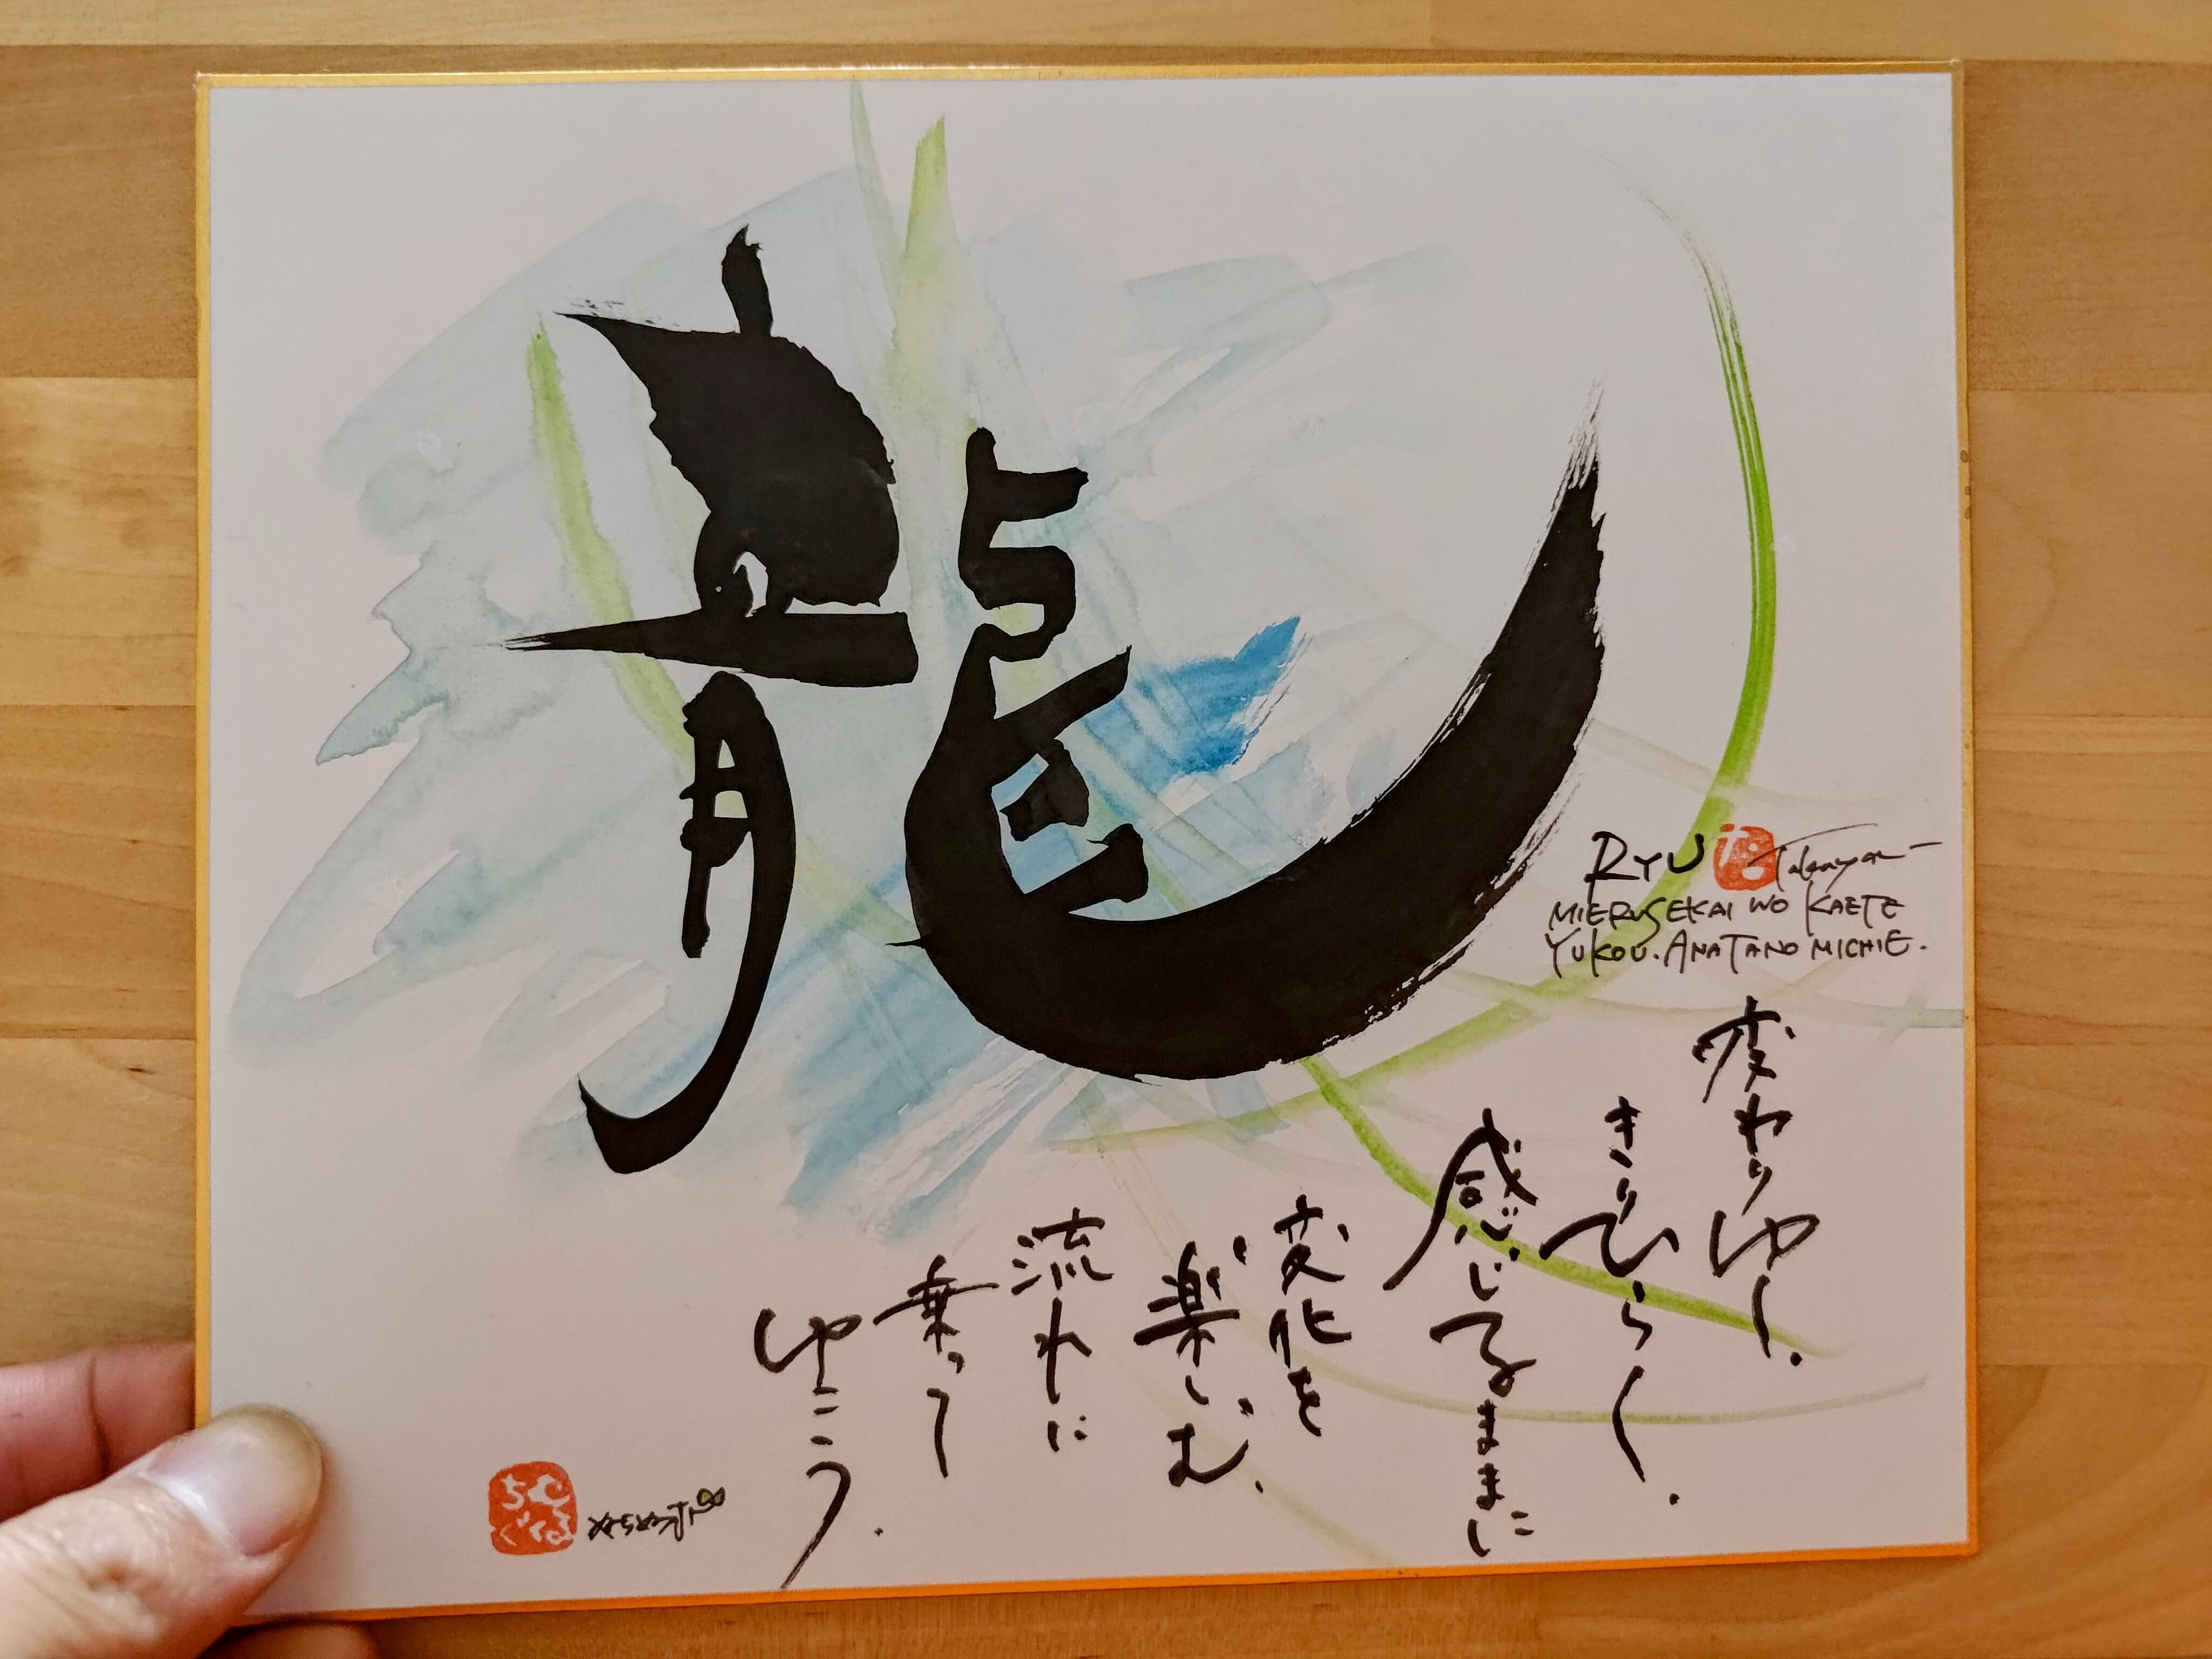 龍
RYU
MIERUSEKAI WO KAETE
YUKOU. ANATANO MICHIE.
変わりゆく.
きりひらく.
感じるままに
変化を
楽しむ.
流れに
乗って
ゆこう.